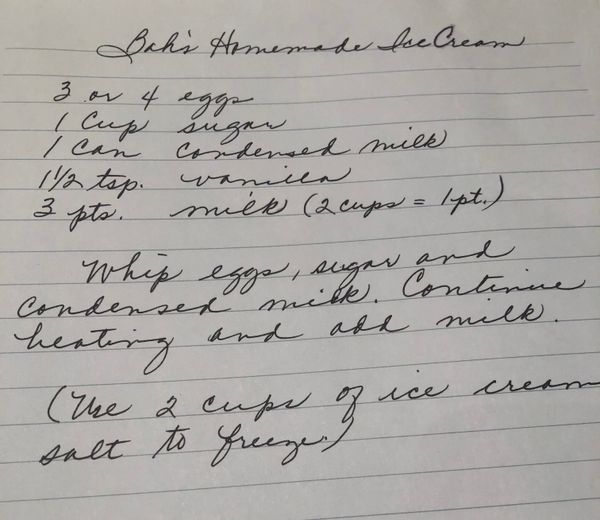 Bah's Homemade Ice Cream
3 or 4 eggs
1 Cup sugar
1 Can condensed milk
1 1/2 tsp. vanilla
3 pts. milk (2 cups = 1 pt.)
Whip eggs, sugar and
condensed milk. Continue
beating and add milk.
(Use 2 cups of ice cream
salt to freeze.)